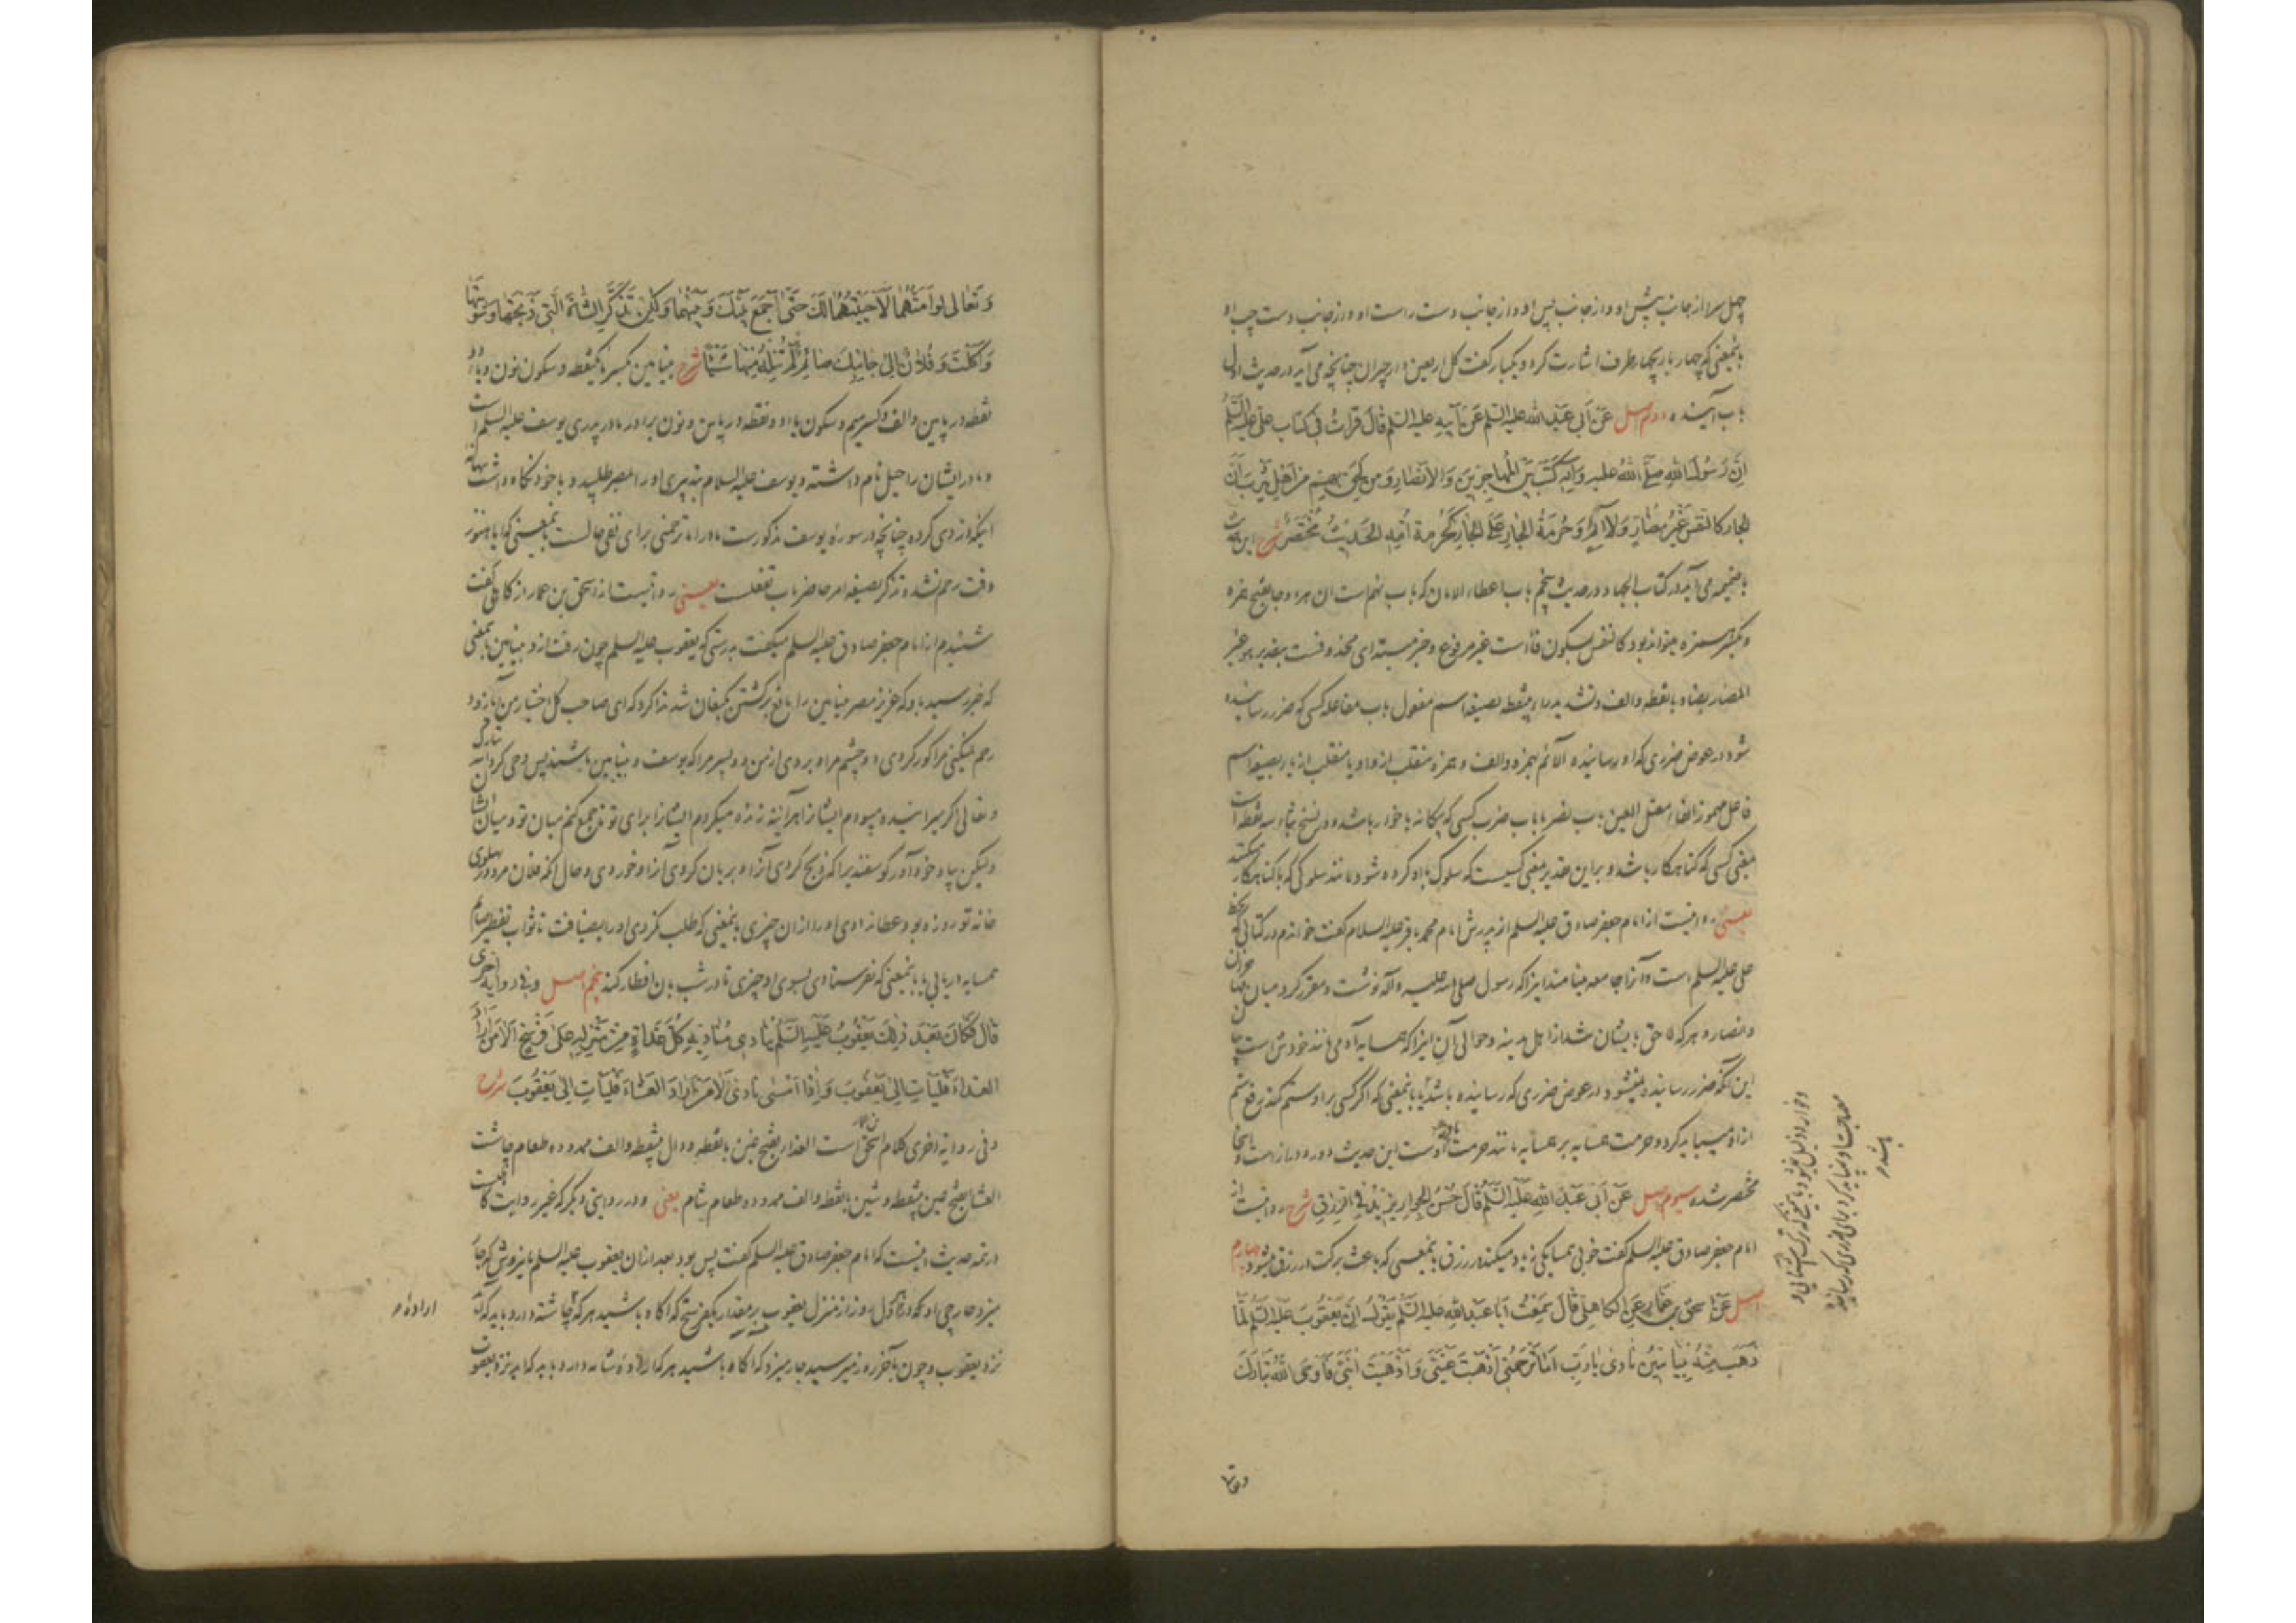 چهل سرا از جانب پیش او و از جانب پس او و از جانب دست راست او و از جانب دست چپ او
بانمعنی که چهار بار بچهار طرف اشارت کرد و یکبار گفت کل اربعین دار جیران چنانچه می آید در حدیث اول
باب آینده دوم اصل عَن اَبی عَبدِ الله علیه السّلم عَن اَبیهِ علیه السّلم قالَ قَرَأتُ فی کِتابِ علی علیه السّلم
اِنَّ رَسُولَ اللهِ صَلَّی اللهُ علیه وَآلِه کَتَبَ بَینَ المُهاجِرینَ وَالاَنصارِ وَمَن لَحِقَ بِهِم مِن اَهلِ یَثرِبَ اَنَّ
الجارَ کَالنَّفسِ غَیرُ مُضارٍّ وَلا آثِمٍ وَحُرمَةُ الجارِ عَلَی الجارِ کَحُرمَةِ اُمِّهِ الحَدیثُ مُختَصَرٌ شرح این حدیث
با ضمیمه می آید در کتاب الجهاد در حدیث پنجم باب اعطاء الامان که باب نهم است ان هر دو جا بفتح همزه
و بکسر همزه میتواند بود کالنفس بسکون فا است غیر مرفوع و خبر مبتدای محذوفست بتقدیر هو غیر
المضار بضاد بانقطه والف وتشدید راء بینقطه بصیغه اسم مفعول باب مفاعله کسی که ضرر رسانیده
شود در عوض ضرری که او رسانیده الآثم بهمزه والف و همزه منقلب از واو یا منقلب از یاء بصیغه اسم
فاعل مهموز الفاء معتل العین باب نصر یا باب ضرب کسی که بیکانه با خود باشد ودر نسخ بثاء سه نقطه است
بمعنی کسی که کناهکار باشد و براین تقدیر بمعنی کسیست که سلوک با او کرده شود مانند سلوکی که با کناهکار میکنند
یعنی روایتست از امام جعفر صادق علیه السلم از پدرش امام محمد باقر علیه السلام گفت خواندم در کتابی که بخط
علی علیه السلم است و آنرا جامعه مینامند اینرا که رسول صلی الله علیه وآله نوشت و مقرر کرد میان مهاجران
وانصار و هر که لاحق بایشان شد از اهل مدینه وحوالی آن اینرا که همسایه آدمی مانند خودش است
این آنکه ضرر رسانیده نمیشود در عوض ضرری که رسانیده باشد بانمعنی که اگر کسی بر او ستم کند رفع ستم
ازو میباید کرد و حرمت همسایه بر همسایه مانند حرمت مادر اوست این حدیث دور و درازست و اینجا
مختصر شده سیوم اصل عَن اَبی عَبدِ اللهِ عَلَیهِ السَّلم قالَ حُسنُ الجِوارِ یَزیدُ فِی الرِّزقِ شرح روایتست از
امام جعفر صادق علیه السلم گفت خوبی همسایکی زیاد میکند در رزق بانمعنی که باعث برکت در رزق میشود چهارم
اصل عَن اِسحقَ بنِ عَمّارٍ عَنِ الکاهِلی قالَ سَمِعتُ اَبا عَبدِ اللهِ علیه السَّلم یَقُولُ اِنَّ یَعقُوبَ علیه السّلم لَمّا
ذَهَبَ مِنهُ بِنیامینُ نادی یا رَبِّ اَما تَرحَمُنی اَذهَبتَ عَینَیَّ وَاَذهَبتَ ابنَیَّ فَاَوحَی اللهُ تَبارَکَ
وتعالی
وَتَعالی لَو اَمَتُّهُما لَاَحیَیتُهُما لَکَ حَتّی اَجمَعَ بَینَکَ وَبَینَهُما وَلکِن تَذَکَّرِ الشّاةَ الَّتی ذَبَحتَها وَشَوَیتَها
وَاَکَلتَ وَفُلانٌ اِلی جانِبِکَ صائِمٌ لَم تُنِلهُ مِنها شَیئًا شرح بنیامین بکسر با یکنقطه و سکون نون و یا دو
نقطه در پایین والف و کسر میم و سکون یا دو نقطه در پایین و نون برادر مادر پدری یوسف علیه السلم است
و مادر ایشان راحیل نام داشته و یوسف علیه السلام بتدبیری او را بمصر طلبید و با خود نگاه داشت بهانه
اینکه دزدی کرده چنانچه در سوره یوسف مذکورست اما ترحمنی برای نفی حالست بانمعنی که ایا هنوز
وقت رحم نشد و تذکر بصیغه امر حاضر باب تفعلست یعنی روایتست از اسحق بن عمار از کاهلی گفت
شنیدم از امام جعفر صادق علیه السلم میگفت بدرستی که یعقوب علیه السلم چون رفت ازو بنیامین بانمعنی
که خبر رسید باو که عزیز مصر بنیامین را مانع برگشتن بکنعان شد ندا کرد که ای صاحب کل اختیار من ایا
رحم نمیکنی مرا کور کردی دو چشم مرا و بردی از من دو پسر مرا که یوسف و بنیامین باشند پس وحی کرد الله تبارک
و تعالی اگر میرانیده میبودم ایشانرا هر آینه زنده میکردم ایشانرا برای تو تا جمع کنم میان تو و میان ایشان
ولیکن بیاد خود آور گوسفندیرا که ذبح کردی آنرا و بریان کردی آنرا و خوردی و حال آنکه فلان مرد در پهلوی
خانه تو روزه بود عطا ندادی او را از ان چیزی بانمعنی که طلب نکردی او را بضیافت تا ثواب تفطیر صائم
همسایه دریابی یا بانمعنی که نفرستادی بسوی او چیزی تا در شب بان افطار کند پنجم اصل وفی روایة اخری
قالَ فَکانَ بَعدَ ذلِکَ یَعقُوبُ عَلَیهِ السَّلم یُنادی مُنادیهِ کُلَّ غَداةٍ مِن مَنزِلِهِ عَلی فَرسَخٍ اَلا مَن اَرادَ
الغَداءَ فَلیَأتِ اِلی یَعقُوبَ وَاِذا اَمسی نادی اَلا مَن اَرادَ العَشاءَ فَلیَأتِ اِلی یَعقُوبَ شرح
وفی روایة اخری کلام اسحق است الغداء بفتح غین بانقطه و دال بینقطه والف ممدوده طعام چاشت
العشاء بفتح عین بینقطه و شین بانقطه والف ممدوده طعام شام یعنی و در روایتی دیگر که غیر روایت
در تتمه حدیث اینست که امام جعفر صادق علیه السلم گفت پس بود بعد از ان یعقوب علیه السلم باینروش که جار
میزد جارچی او که در اول روز از منزل یعقوب بر مقدار یکفرسخ که اگاه باشید هر که چاشته دارد باید که آید
نزد یعقوب و چون بآخر روز میرسید جار میزد که اگاه باشید هر که اراده شام دارد باید که اید نزد یعقوب
اراده م